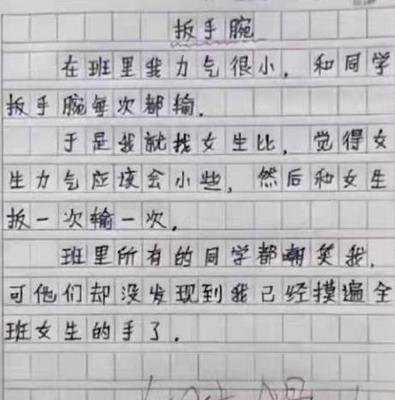 扳手腕
在班里我力气很小，和同学
扳手腕每次都输．
于是我就找女生比，觉得女
生力气应该会小些，然后和女生
扳一次输一次，
班里所有的同学都嘲笑我．
可他们却没发现到我已经摸遍全
班女生的手了．